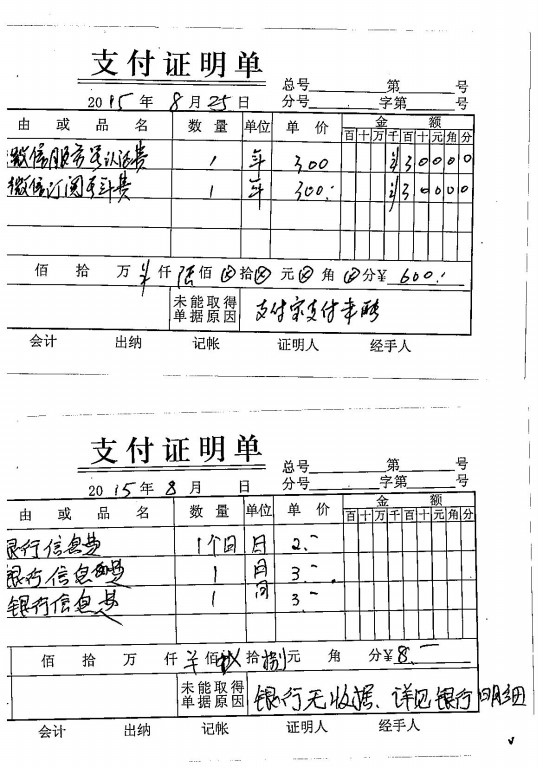 支付证明单
总号 第 号
2015年 8月25日 分号 字第 号
由或品名 数量 单位 单价 金额
百十万千百十元角分
微信服务号认证费 1 年 300 ¥30000
微信订阅号 费 1 年 300.- ¥30000
佰拾万 仟陆佰 拾 元 角 分¥ 600.-
未能取得单据原因 支付宝支付
会计 出纳 记帐 证明人 经手人
支付证明单
总号 第 号
2015年 8月 日 分号 字第 号
由或品名 数量 单位 单价 金额
百十万千百十元角分
银行信息费 1个 月 2.-
银行信息费 1 月 3.-
银行信息费 1 3.-
佰拾万仟 佰 拾捌元 角 分¥8.-
未能取得单据原因 银行无收据、详见银行明细
会计 出纳 记帐 证明人 经手人